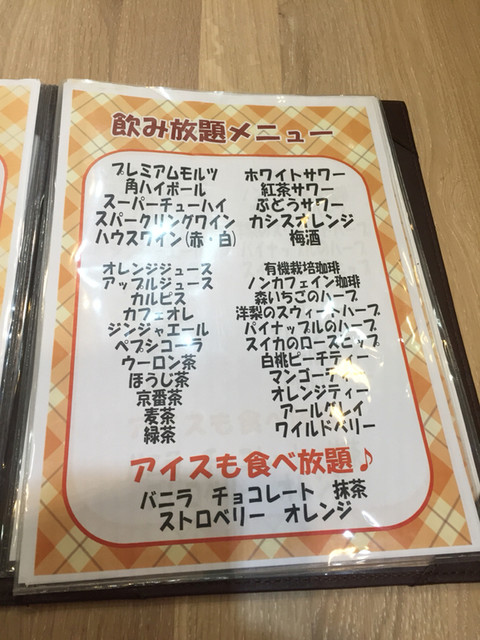 飲み放題メニュー
プレミアムモルツ
角ハイボール
スーパーチューハイ
スパークリングワイン
ハウスワイン(赤・白)
ホワイトサワー
紅茶サワー
ぶどうサワー
カシスオレンジ
梅酒
オレンジジュース
アップルジュース
カルピス
カフェオレ
ジンジャエール
ペプシコーラ
ウーロン茶
ほうじ茶
京番茶
麦茶
緑茶
有機栽培珈琲
ノンカフェイン珈琲
森いちごのハーブ
洋梨のスウィートハーブ
パイナップルのハーブ
スイカのローズヒップ
白桃ピーチティー
マンゴーティー
オレンジティー
アールグレイ
ワイルドベリー
アイスも食べ放題♪
バニラ チョコレート 抹茶
ストロベリー オレンジ